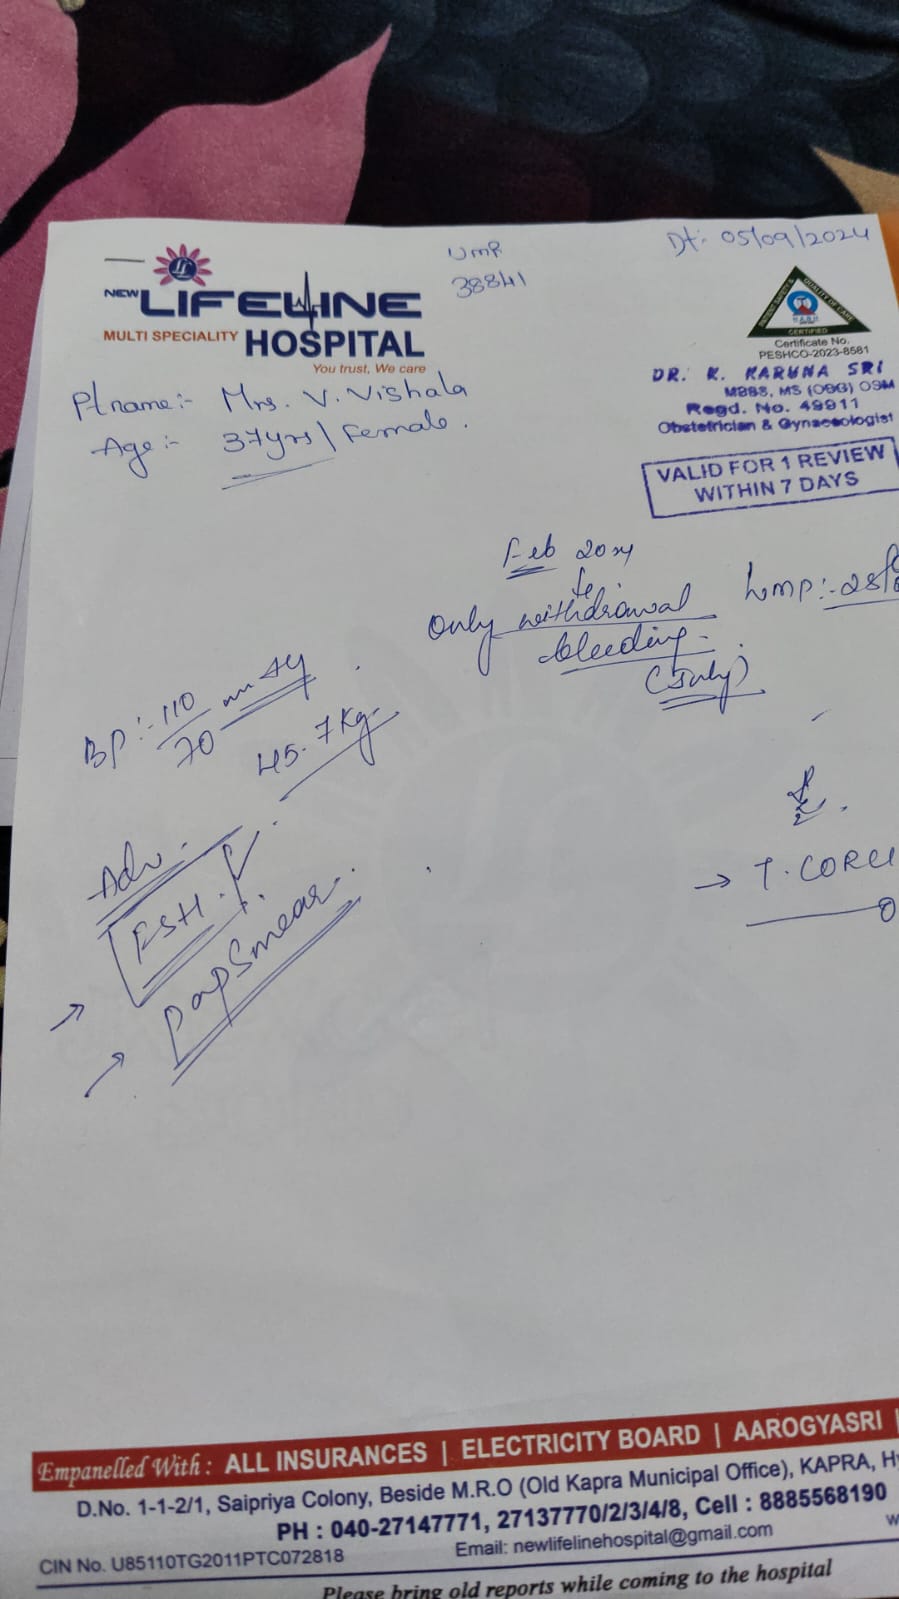 Dt:- 05/09/2024
UMR
38841
NEW LIFELINE
MULTI SPECIALITY HOSPITAL
You trust, We care
PATIENT SAFETY & QUALITY OF CARE
CERTIFIED
Certificate No.
PESHCO-2023-8581
DR. K. KARUNA SRI
MBBS, MS (OBG) OSM
Regd. No. 49911
Obstetrician & Gynaecologist
VALID FOR 1 REVIEW
WITHIN 7 DAYS
Pt name:- Mrs. V. Vishala
Age:- 37yrs/ Female.
Feb 2024
Only withdrawal
bleeding.
(July)
Lmp:- 28/
BP:- 110/70 mmHg
45.7 Kg.
Adv.
→ FSH.
→ Pap Smear.
→ T. CORE
Empanelled With : ALL INSURANCES | ELECTRICITY BOARD | AAROGYASRI |
D.No. 1-1-2/1, Saipriya Colony, Beside M.R.O (Old Kapra Municipal Office), KAPRA, Hy
PH : 040-27147771, 27137770/2/3/4/8, Cell : 8885568190
CIN No. U85110TG2011PTC072818 Email: newlifelinehospital@gmail.com w
Please bring old reports while coming to the hospital